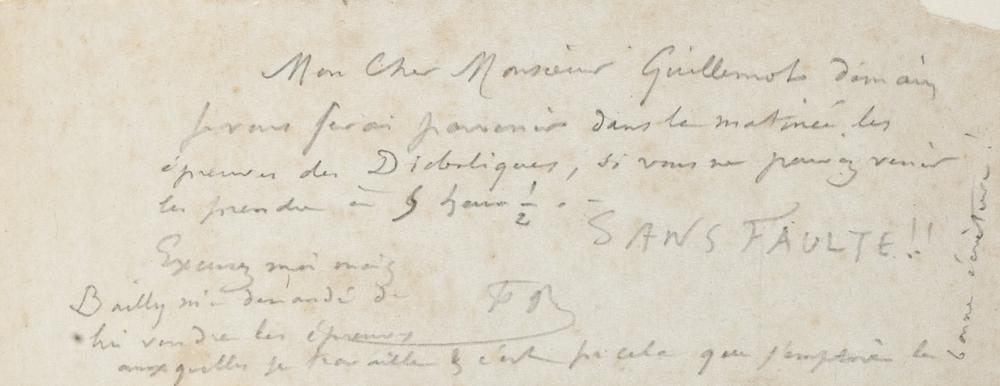 Mon Cher Monsieur Guillemot demain
je vous ferai parvenir dans la matinée les
épreuves des Diaboliques, si vous ne pouvez venir
les prendre à 5 heures 1/2 . -
SANS FAULTE!!
Excusez moi mais
Bailly m'a demandé de
lui vendre les épreuves
FR
auxquelles je travaille & c'est pr cela que j'emploie la
bonne écriture!